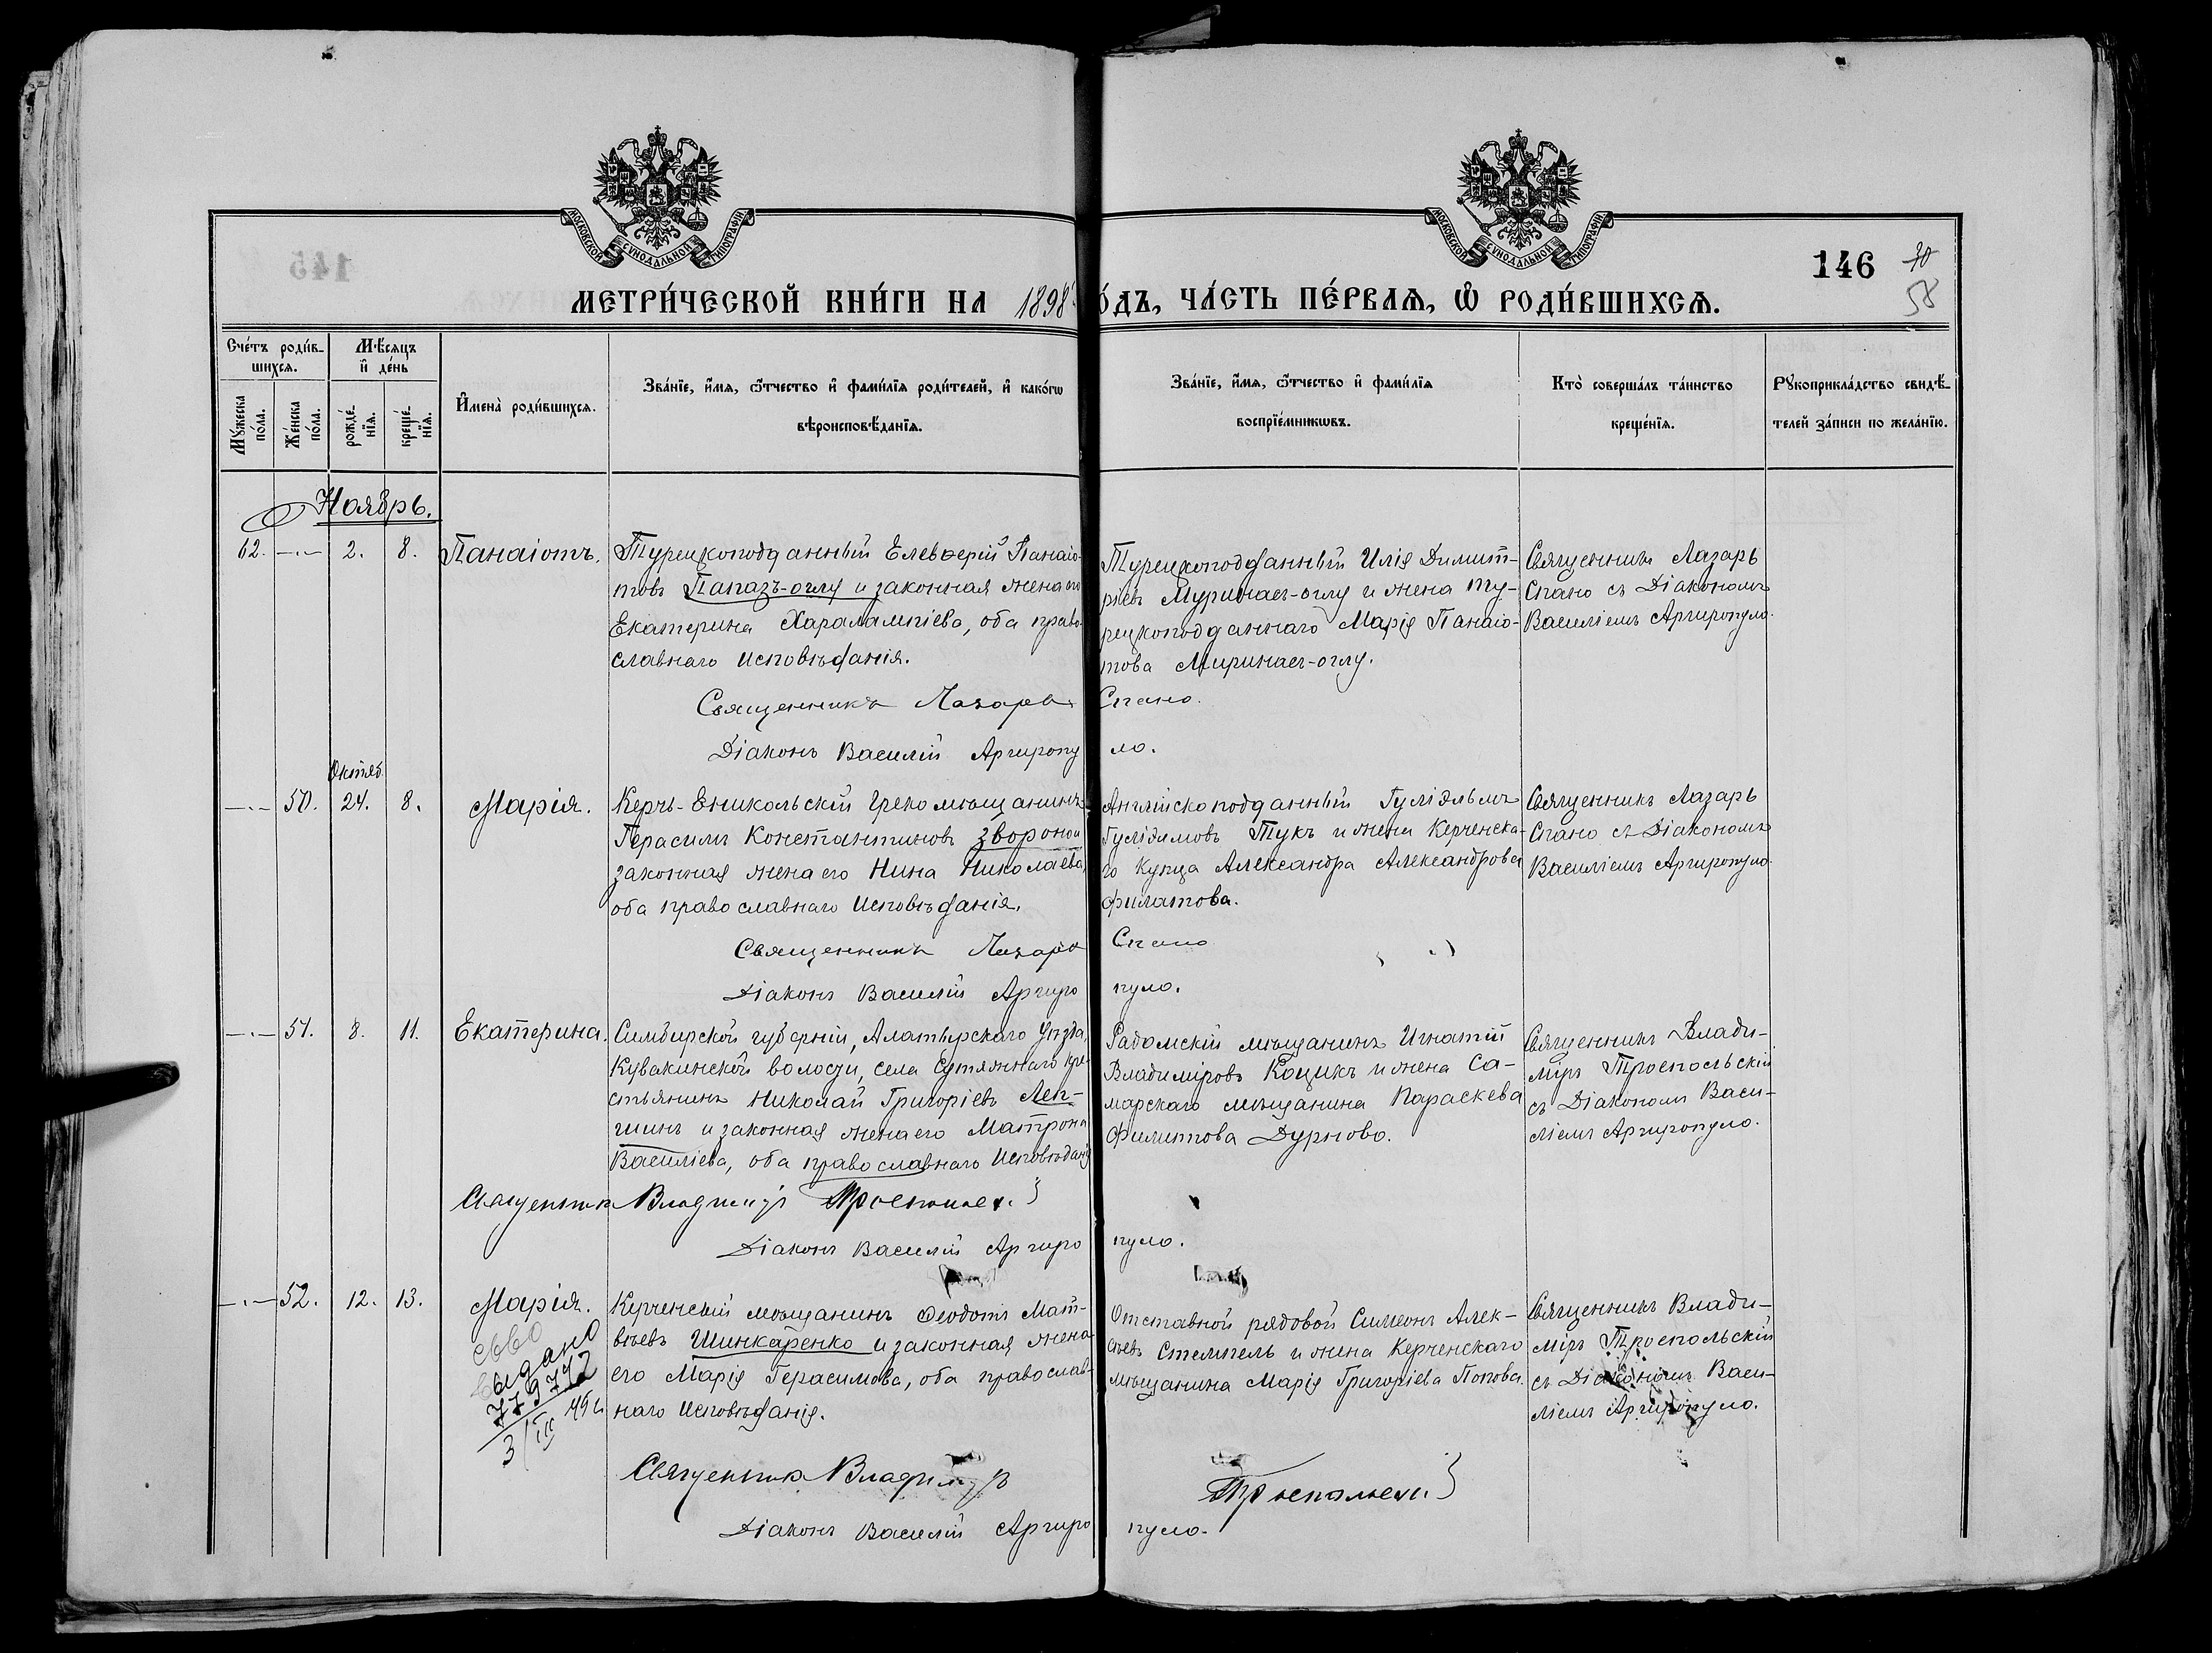 МОСКОВСКОЙ СУНОДАЛЬНОЙ ТИПОГРАФІИ
МОСКОВСКОЙ СУНОДАЛЬНОЙ ТИПОГРАФІИ
145
146
58
МЕТРИ́ЧЕСКОЙ КНИ́ГИ НА 1898 О́ДЪ, ЧА́СТЬ ПЕ́РВАѦ, Ѡ҆ РОДИ́ВШИХСѦ.
Сче́тъ роди́в-
шихся.
Мѣ́сяцъ
и҆ де́нь
Му́жеска по́ла.
Же́нска по́ла.
рожде́-нїя.
креще́-нїя.
И҆мена̀ роди́вшихся.
Зва́нїе, и҆́мя, ѻ҆́тчество и҆ фами́лїя роди́телей, и҆ како́гѡ
вѣроисповѣ́данїя.
Зва́нїе, и҆́мя, ѻ҆́тчество и҆ фами́лїя
воспрїе́мникѡвъ.
Кто̀ соверша́лъ та́инство
креще́нїя.
Рꙋкоприкла́дство свидѣ́-
телей за́писи по жела́нїю.
Ноябрь.
62. —·— 2. 8. Панаіотъ.
Турецкоподданный Елевѳерій Панаіо-
товъ Папазъ-оглу и законная жена его
Екатерина Харалампіева, оба право-
славнаго исповѣданія.
Турецкоподданный Илія Димит-
ріевъ Муринаег-оглу и жена ту-
рецкоподданнаго Марія Панаіо-
това Миринаег-оглу.
Священникъ Лазарь
Спано съ Діакономъ
Василіемъ Аргиропуло.
Священникъ Лазарь Спано.
Діаконъ Василій Аргиропу ло.
Октяб
—·— 50. 24. 8. Марія.
Керчь-Еникольскій Грекомѣщанинъ
Герасимъ Константиновъ Звороно и
законная жена его Нина Николаева,
оба православнаго исповѣданія.
Англійскоподданный Гуліэльмъ
Гуліэлмовъ Тукъ и жена Керченска-
го купца Александра Александрова
Филатова.
Священникъ Лазарь
Спано съ Діакономъ
Василіемъ Аргиропуло
Священникъ Лазарь Спано
Діаконъ Василій Аргиро пуло.
—·— 51. 8. 11. Екатерина.
Симбирской губерніи, Алатырскаго уѣзда,
Кувакинской волости, села Сутяжнаго кре-
стьянинъ Николай Григоріевъ Леп-
шинъ и законная жена его Матрона
Василіева, оба православнаго исповѣданія
Радомскій мѣщанинъ Игнатій
Владиміровъ Коцикъ и жена Са-
марскаго мѣщанина Параскева
Филиппова Дурново.
Священникъ Влади-
міръ Троепольскій
съ Діакономъ Васи-
ліемъ Аргиропуло.
Священникъ Владиміръ Троепольскій
Діаконъ Василій Аргиро пуло.
—·— 52. 12. 13. Марія.
Керченскій мѣщанинъ Ѳеодотъ Мат-
вѣевъ Шинкаренко и законная жена
его Марія Герасимова, оба православ-
наго исповѣданія.
Отставной рядовой Симеонъ Алек-
сѣевъ Стемпель и жена Керченскаго
мѣщанина Марія Григоріева Попова.
Священникъ Влади-
міръ Троепольскій
съ Діакономъ Васи-
ліемъ Аргиропуло.
выдано
3/III 45 г.
Священникъ Владиміръ Троепольскій
Діаконъ Василій Аргиро пуло.